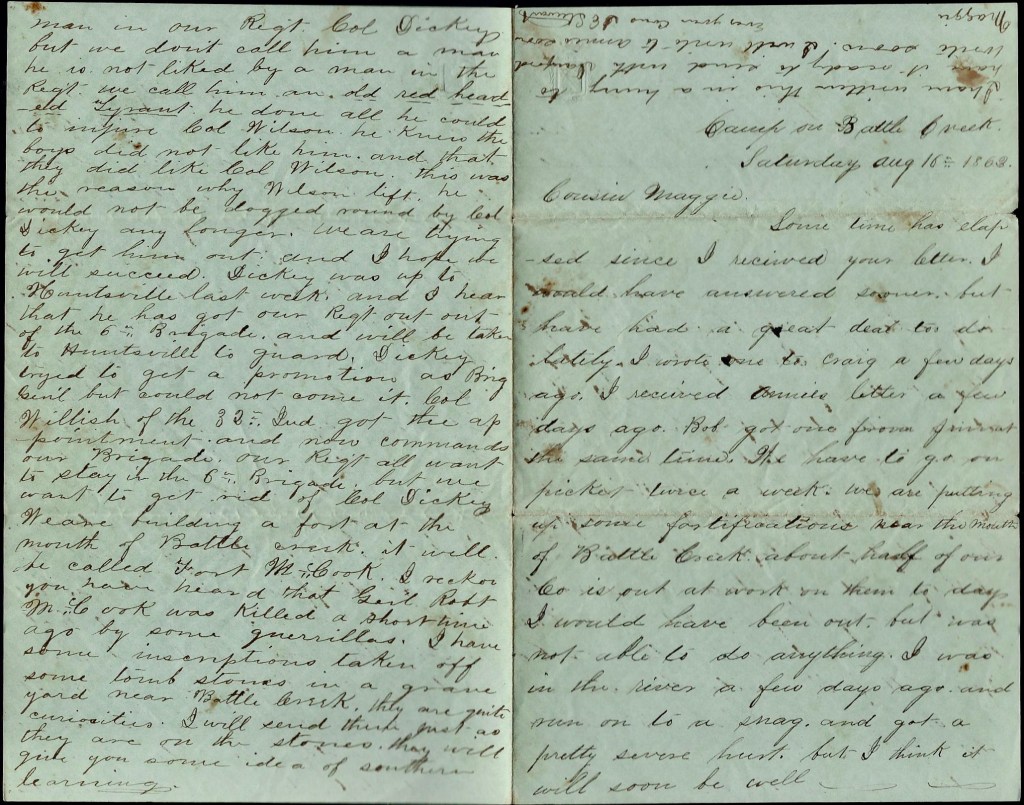 man in our Regt. Col Dickey
but we dont call him a man
he is not liked by a man in the
Regt. we call him an old red head
-ed Tyrant. he done all he could
to injure Col Wilson. he knew the
boys did not like him. and that
they did like Col Wilson. this was
the reason why Wilson lift. he
would not be dogged round by Col
Dickey any longer. We are trying
to get him out. and I hope we
will succeed. Dickey was up to
Huntsville last week. and I hear
that he has got our Regt out out
of the 6th Brigade. and will be taken
to Huntsville to guard. Dickey
tryed to get a promotion as Brig
Genl but could not come it. Col
Willish of the 32= Ind got the ap
pointment. and now commands
our Brigade. our Regt all want
to stay in the 6th Brigade. but we
want to get rid of Col Dickey
We are building a fort at the
mouth of Battle creek. it will.
be called Fort McCook. I reckon
you have heard that Genl Robt
McCook was killed a short time
ago by some guerrillas. I have
some inscriptions taken off
some tomb stones in a grave
yard near Battle Creek. they are quite
curiosities. I will send them just as
they are on the stones. they will
give you some idea of southern
learning.
Camp on Battle Creek.
Saturday Aug 16= 1862.
Cousin Maggie.
Some time has elap
-sed since I received your letter. I
would have answered sooner. but
have had a great deal to do
lately. I wrote one to Craig a few days
ago. I received Annies letter a few
days ago. Bob got one from
the same time. We have to go on
picket twice a week. we are putting
up some fortifications near the mouth
of Battle Creek. about half of our
Co is out at work on them to day
I would have been out. but was
not able to do anything. I was
in the river a few days ago. and
run on to a snag. and got a
pretty severe hurt. but I think it
will soon be well
I have written this in a hurry to
have it ready to send with
Write soon. I will write to annie soon
Ever your Cous J E Stewart
Maggie